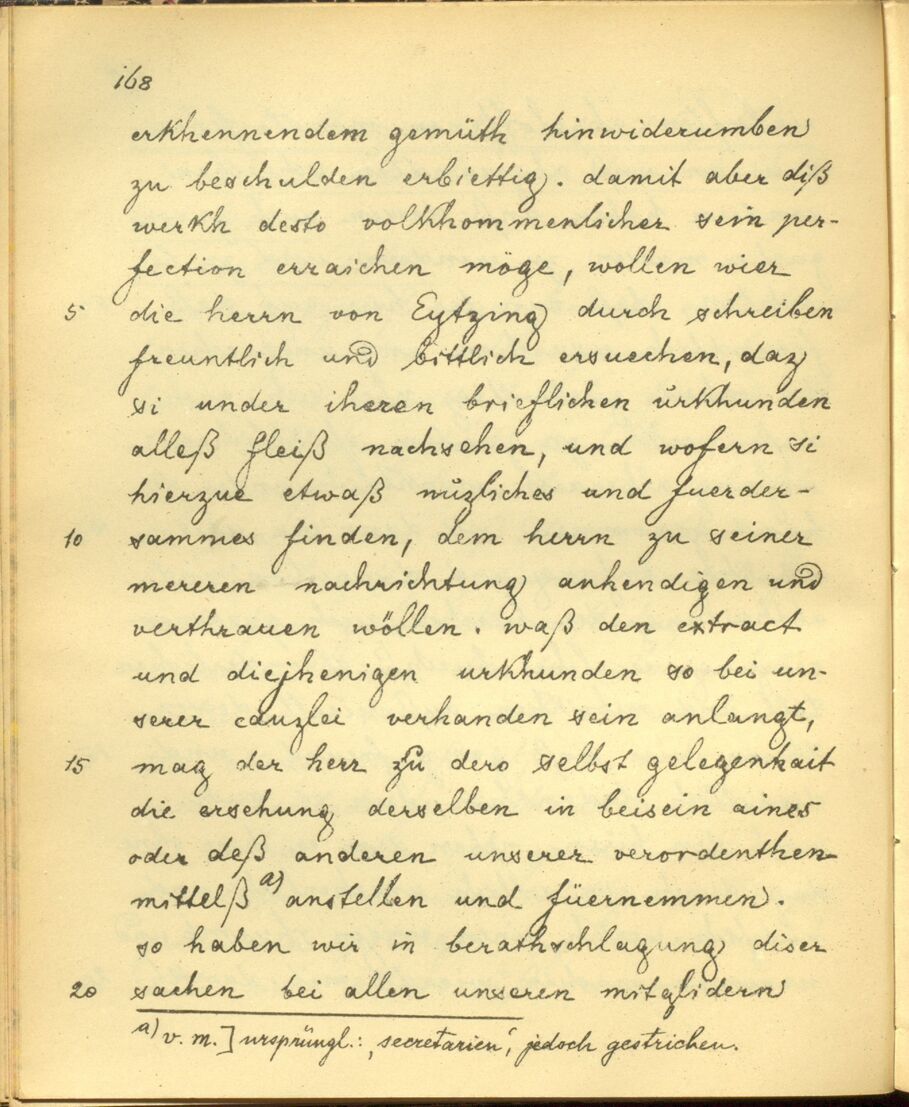 168
erkhennendem gemüth hinwiderumben
zu beschulden erbiettig. damit aber diß
werkh desto volkhommenlicher sein per-
fection erraichen möge, wollen wier
5 die herrn von Eytzing durch schreiben
freuntlich und bittlich ersuechen, daz
si under iheren brieflichen urkhunden
alleß fleiß nachsehen, und wofern si
hierzue etwaß nuzliches und fuerder-
10 sammes finden, dem herrn zu seiner
mereren nachrichtung anhendigen und
verthrauen wöllen. waß den extract
und diejhenigen urkhunden so bei un-
serer canzlei verhanden sein anlangt,
15 mag der herr zu dero selbst gelegenhait
die ersehung derselben in beisein aines
oder deß anderen unserer verordenthen
mittelß a) anstellen und füernemmen.
so haben wir in berathschlagung diser
20 sachen bei allen unseren mitglidern
a) v. m.] ursprüngl.: ‚secretarien‘, jedoch gestrichen.